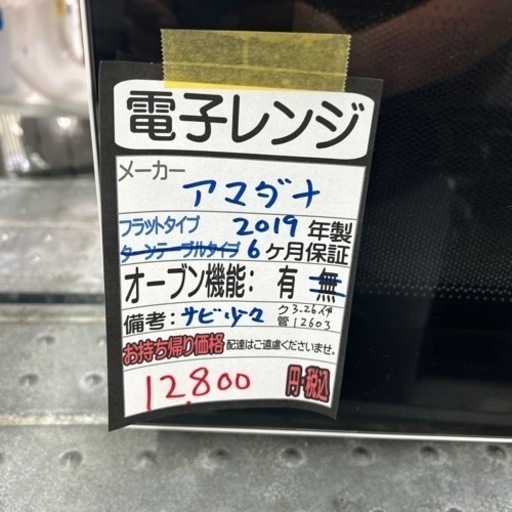 電子レンジ
メーカー
アマダナ
フラットタイプ 2019年製
ターンテーブルタイプ 6ヶ月保証
オーブン機能: 有 無
備考: サビ・少々 ク3.26イ中
管12603
お持ち帰り価格 配達はご遠慮くださいませ。
12,800 円・税込